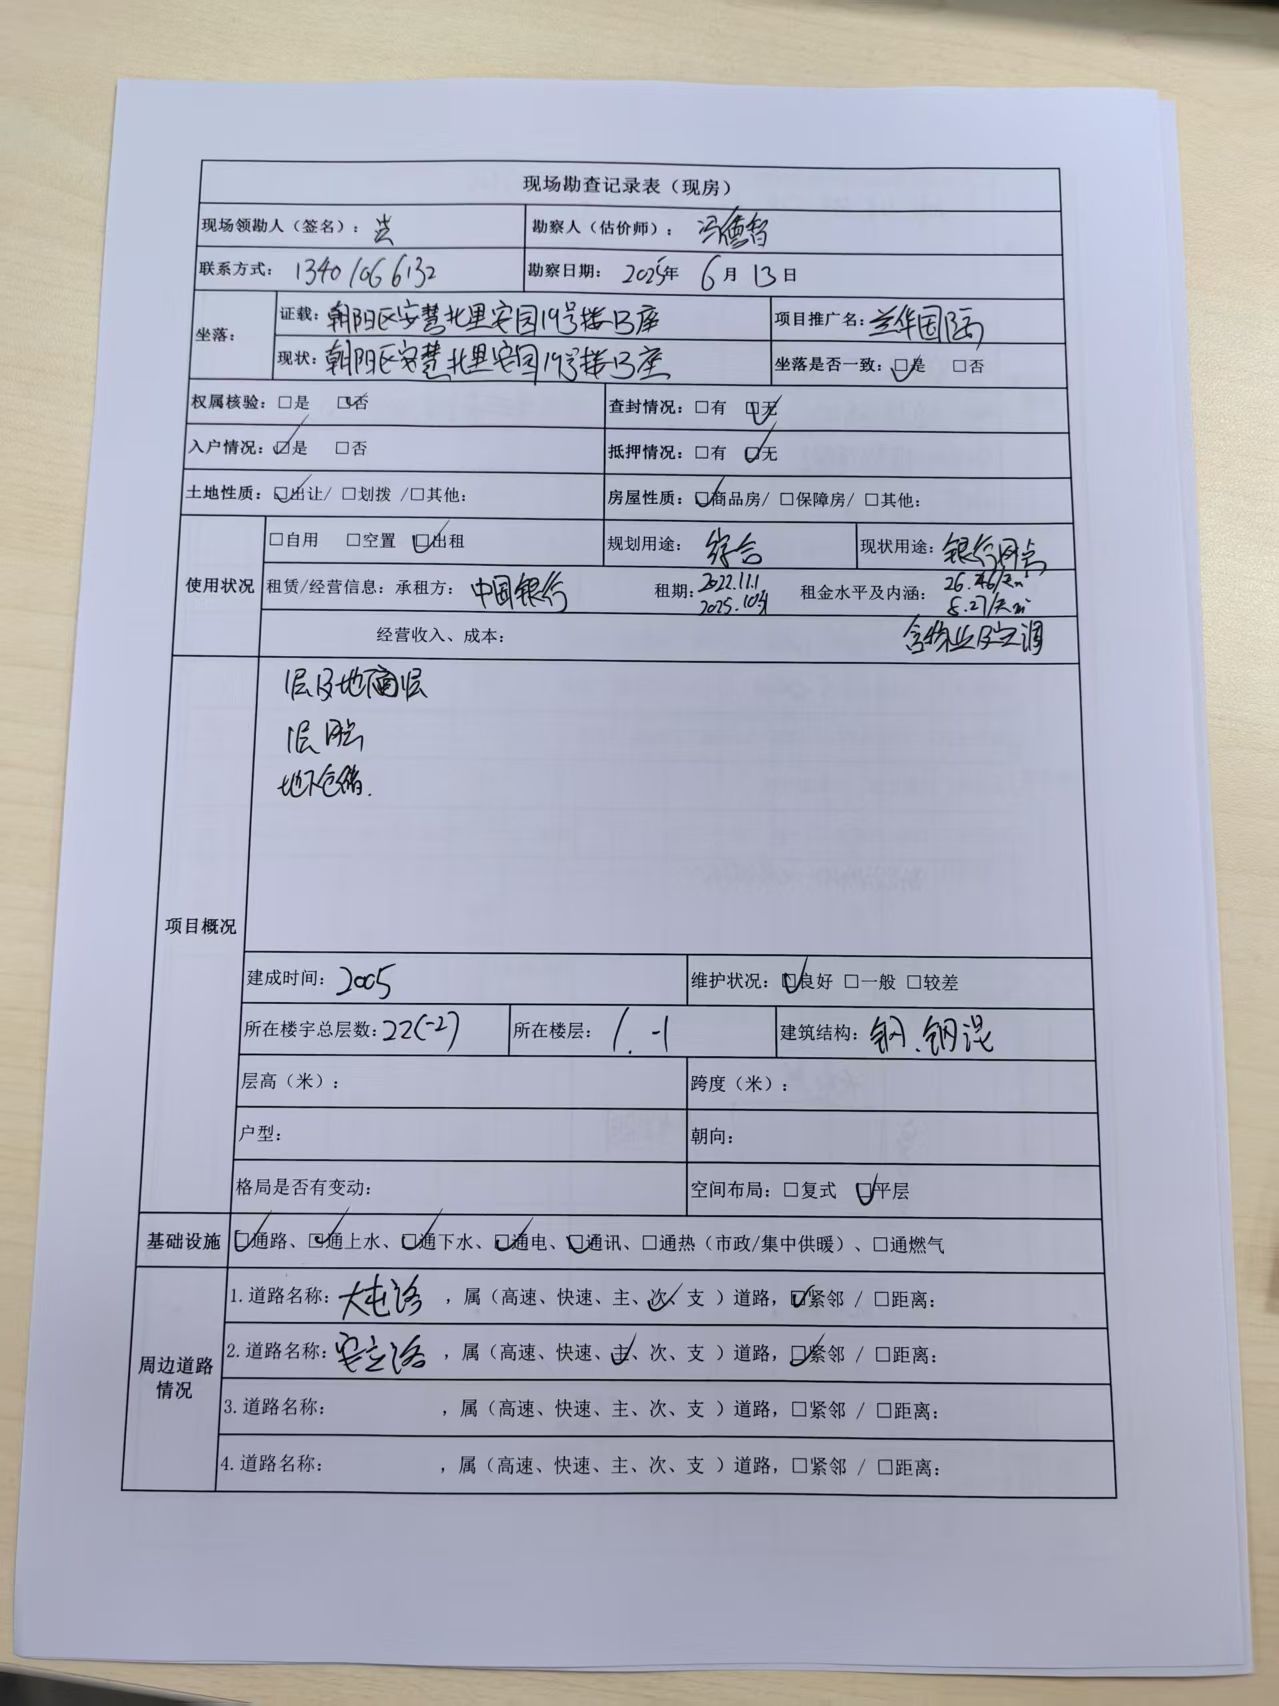 现场勘查记录表（现房）
现场领勘人（签名）： 勘察人（估价师）： 冯德智
联系方式： 13401066132 勘察日期： 2025年 6月 13日
坐落： 证载：朝阳区安慧北里安园19号楼B座 项目推广名：兰华国际
现状：朝阳区安慧北里安园19号楼B座 坐落是否一致：☑是 □否
权属核验：□是 ☑否 查封情况：□有 ☑无
入户情况：☑是 □否 抵押情况：□有 ☑无
土地性质：☑出让/ □划拨 /□其他： 房屋性质：☑商品房/ □保障房/ □其他：
使用状况 □自用 □空置 ☑出租 规划用途： 综合 现状用途：银行网点
租赁/经营信息：承租方： 中国银行 租期：2022.11.1 租金水平及内涵： 26.46/天㎡
2025.10.31 8.27/天㎡
经营收入、成本： 含物业及空调
1层及地商1层
1层 网点
地下仓储.
项目概况
建成时间：2005 维护状况：☑良好 □一般 □较差
所在楼宇总层数：22(-2) 所在楼层： 1. -1 建筑结构：钢、钢混
层高（米）： 跨度（米）：
户型： 朝向：
格局是否有变动： 空间布局：□复式 ☑平层
基础设施 ☑通路、☑通上水、☑通下水、☑通电、☑通讯、□通热（市政/集中供暖）、□通燃气
周边道路情况 1.道路名称：大屯路 ，属（高速、快速、主、次✓、支 ）道路，☑紧邻 / □距离：
2.道路名称：安立路 ，属（高速、快速、主✓、次、支 ）道路，☑紧邻 / □距离：
3.道路名称： ，属（高速、快速、主、次、支 ）道路，□紧邻 / □距离：
4.道路名称： ，属（高速、快速、主、次、支 ）道路，□紧邻 / □距离：